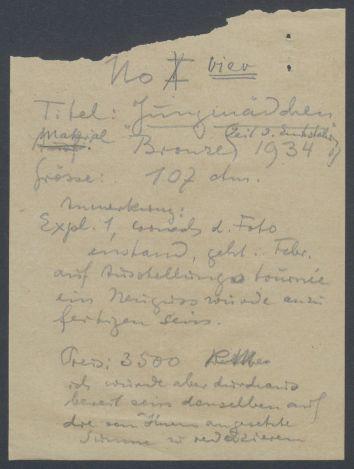 No X vier
Titel: Jungmädchen
Material (Zeit d. Entstehung)
Bronze 1934
Grösse: 107 chm.
Anmerkung:
Expl. 1, wonach d. Foto
enstand, geht i. Febr.
auf Ausstellungstournée
ein Neuguss würde anzu
fertigen sein.
Preis: 3500
ich würde aber durchaus
bereit sein denselben auf
die von Ihnen angesetzte
Summe zu reduzieren